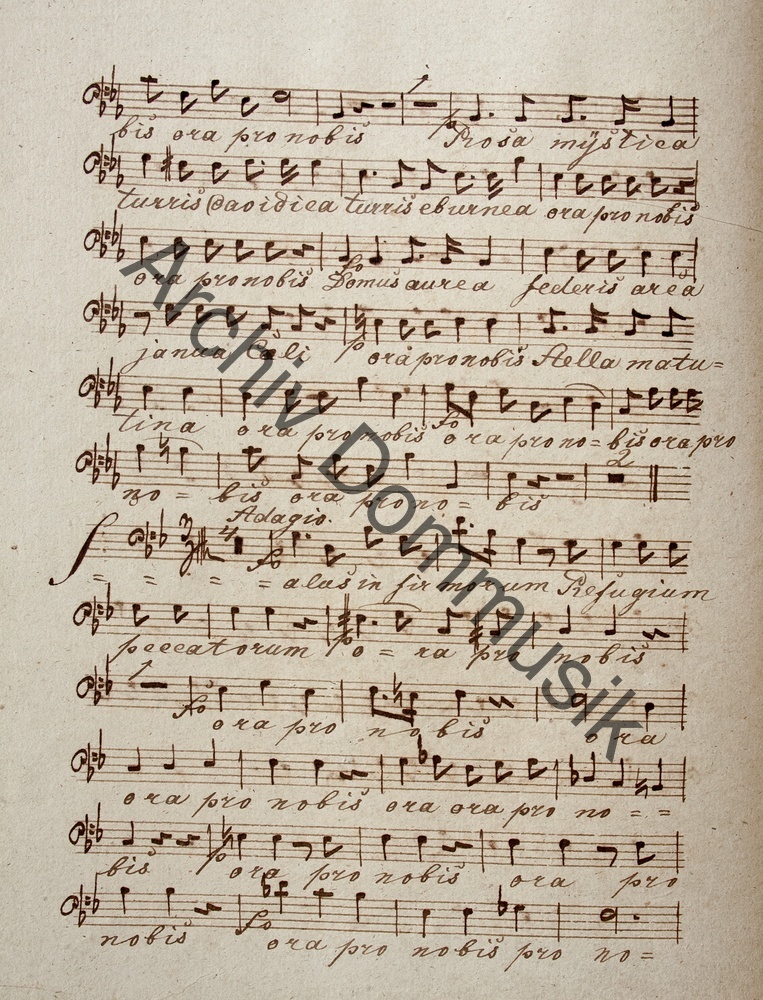 bis ora pro nobis Rosa mÿstica
turris Davidica turris eburnea ora pro nobis
ora pro nobis Domus aurea federis arca
janua Cæli ora pro nobis Stella matu=
tina ora pro nobis ora pro no= bis ora pro
2
no = bis ora pro no = bis
Adagio.
4
= = = = alus in firmorum Refugium
peccatorum o = ra pro nobis
1
ora pro nobis ora
ora pro nobis ora ora pro no = =
bis ora pro nobis ora pro
nobis ora pro nobis pro no=
Archiv Dommusik